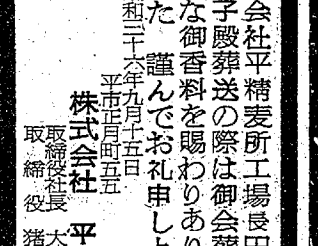 会社平精麦所工場長田
子殿葬送の際は御会葬
な御香料を賜わりあり
た 謹んでお礼申し上
和三十六年九月十五日
平市正月町五五
株式会社 平
取締役社長 大
取締役 猪